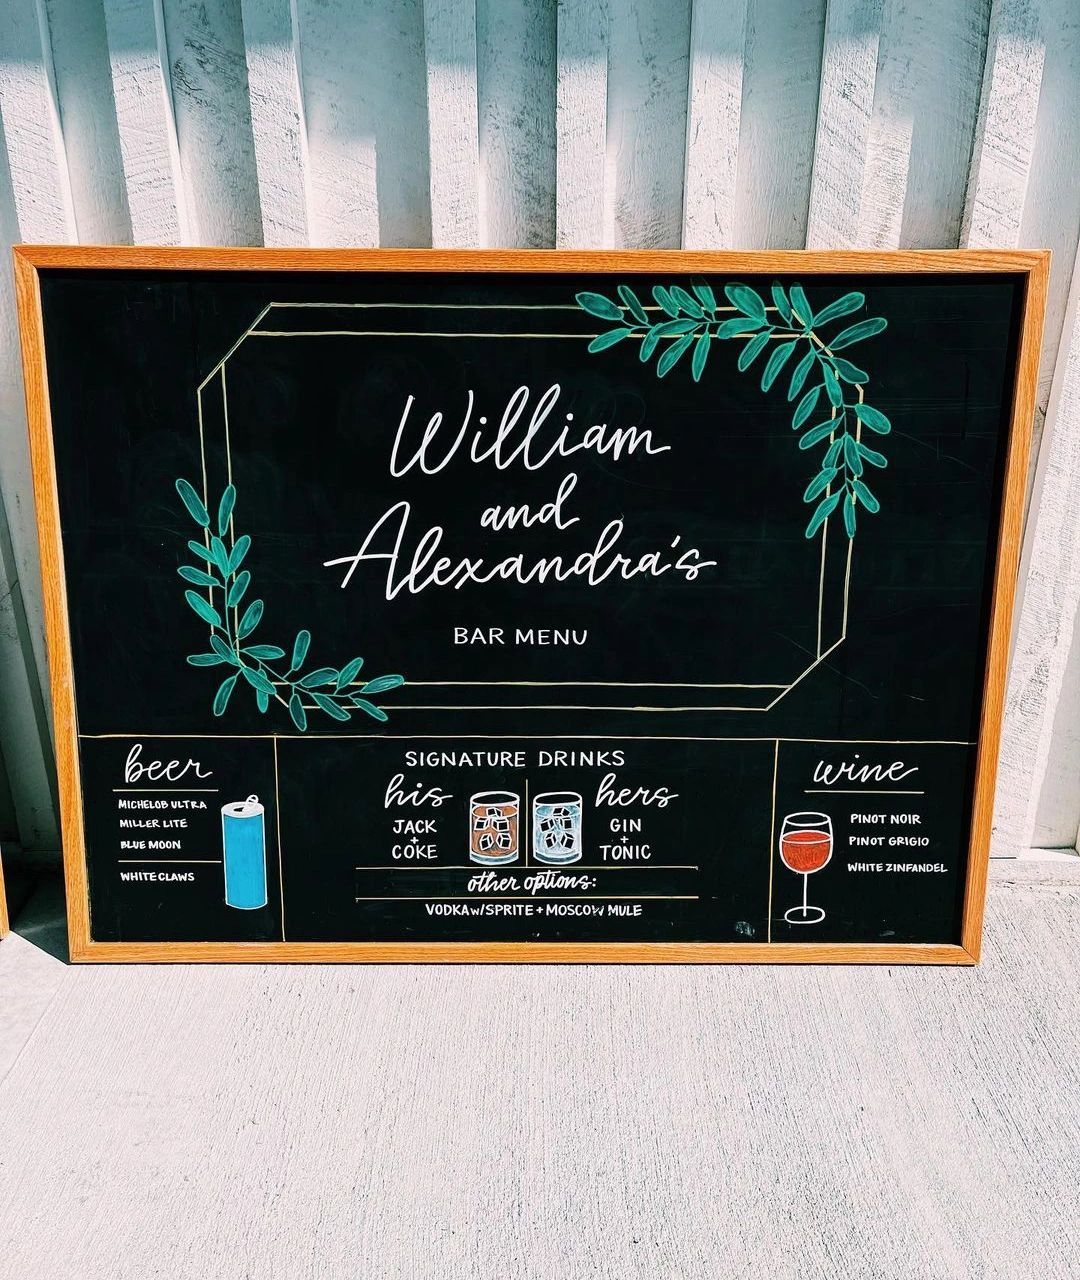 William
and
Alexandra's
BAR MENU
beer
MICHELOB ULTRA
MILLER LITE
BLUE MOON
WHITE CLAWS
SIGNATURE DRINKS
his
JACK
+
COKE
hers
GIN
+
TONIC
other options:
VODKA w/SPRITE + MOSCOW MULE
wine
PINOT NOIR
PINOT GRIGIO
WHITE ZINFANDEL